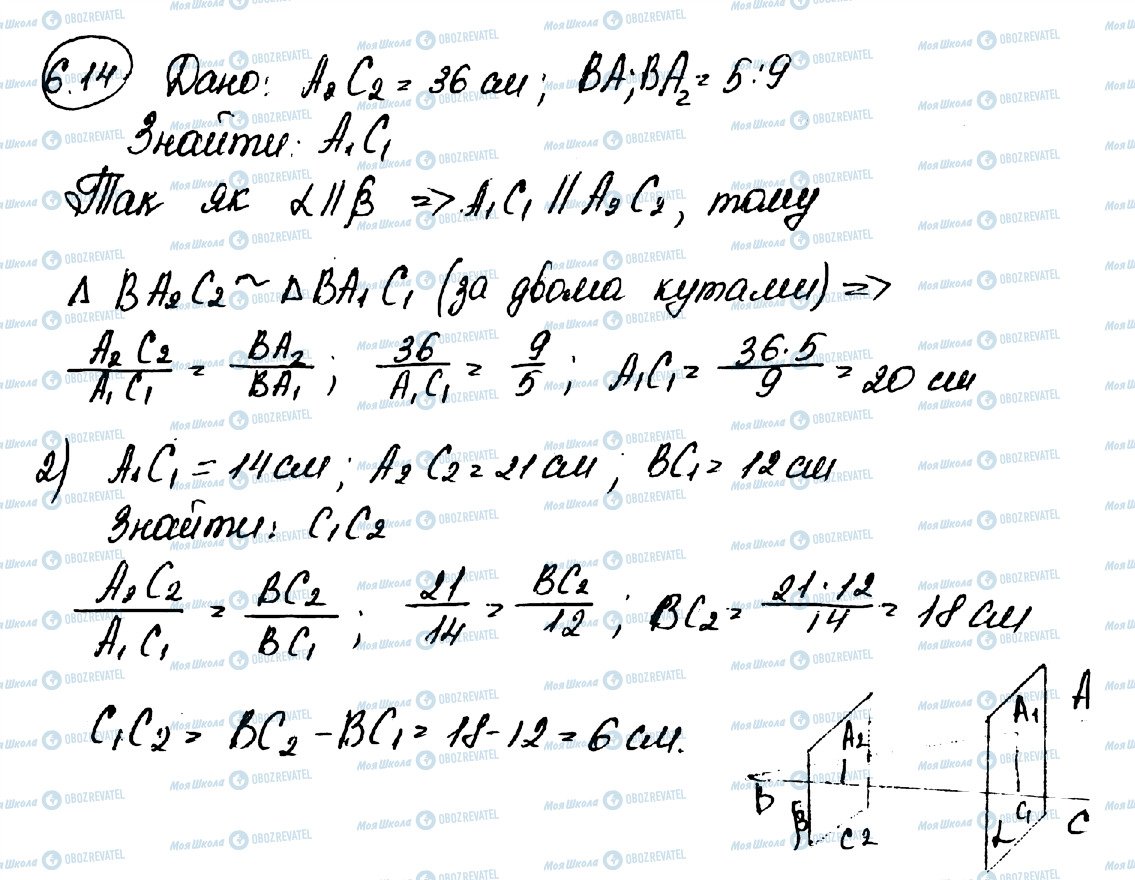 6.14 Дано: A₂C₂ = 36 см; BA; BA₂ = 5:9
Знайти: A₁C₁
Так як α || β => A₁C₁ || A₂C₂, тому
Δ BA₂C₂ ~ Δ BA₁C₁ (за двома кутами) =>
A₂C₂/A₁C₁ = BA₂/BA₁; 36/A₁C₁ = 9/5; A₁C₁ = 36·5/9 = 20 см
2) A₁C₁ = 14 см; A₂C₂ = 21 см; BC₁ = 12 см
Знайти: C₁C₂
A₂C₂/A₁C₁ = BC₂/BC₁; 21/14 = BC₂/12; BC₂ = 21·12/14 = 18 см
C₁C₂ = BC₂ - BC₁ = 18 - 12 = 6 см.
A₁ A
A₂
B
β C₂ α C₁ C
Моя Школа OBOZREVATEL